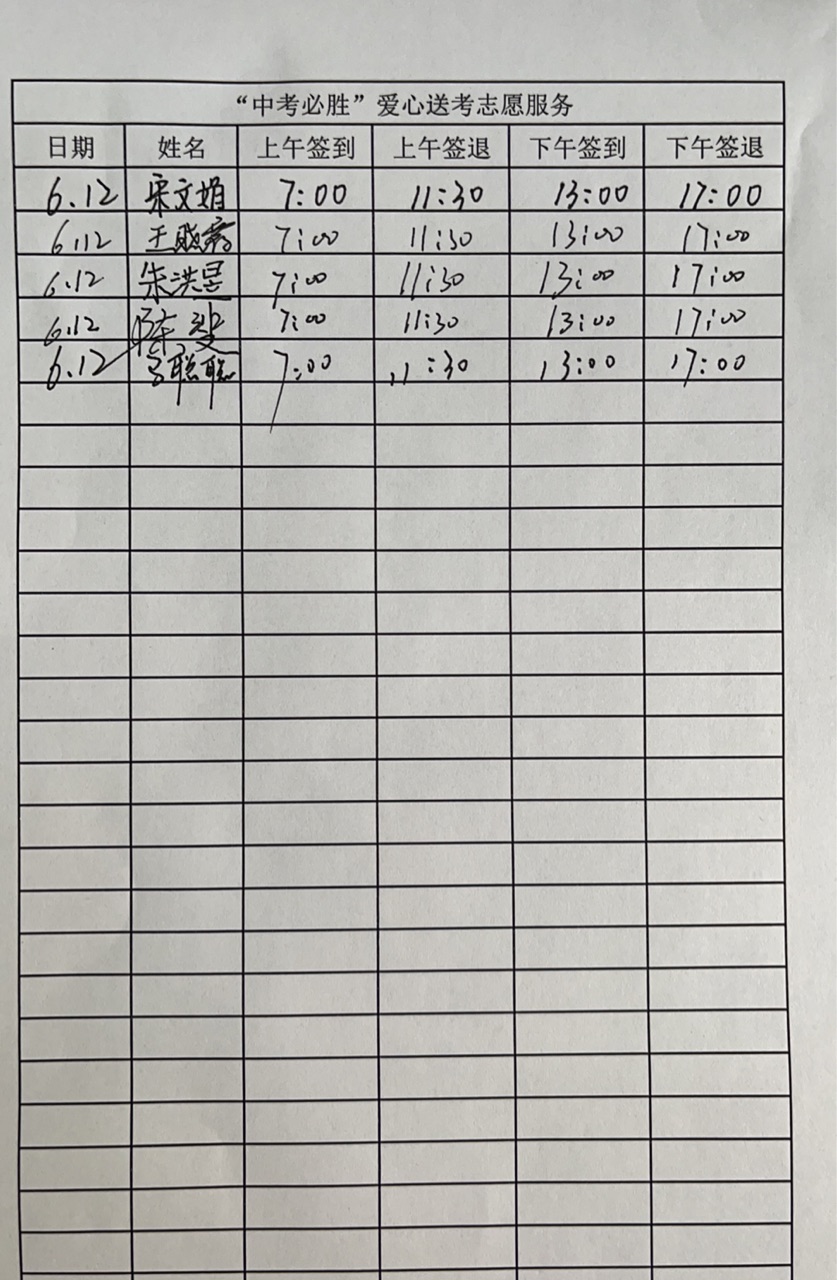 “中考必胜”爱心送考志愿服务
日期 姓名 上午签到 上午签退 下午签到 下午签退
6.12 宋文娟 7:00 11:30 13:00 17:00
6.12 王 7:00 11:30 13:00 17:00
6.12 朱洪昱 7:00 11:30 13:00 17:00
6.12 陈 7:00 11:30 13:00 17:00
6.12 聪聪 7:00 11:30 13:00 17:00